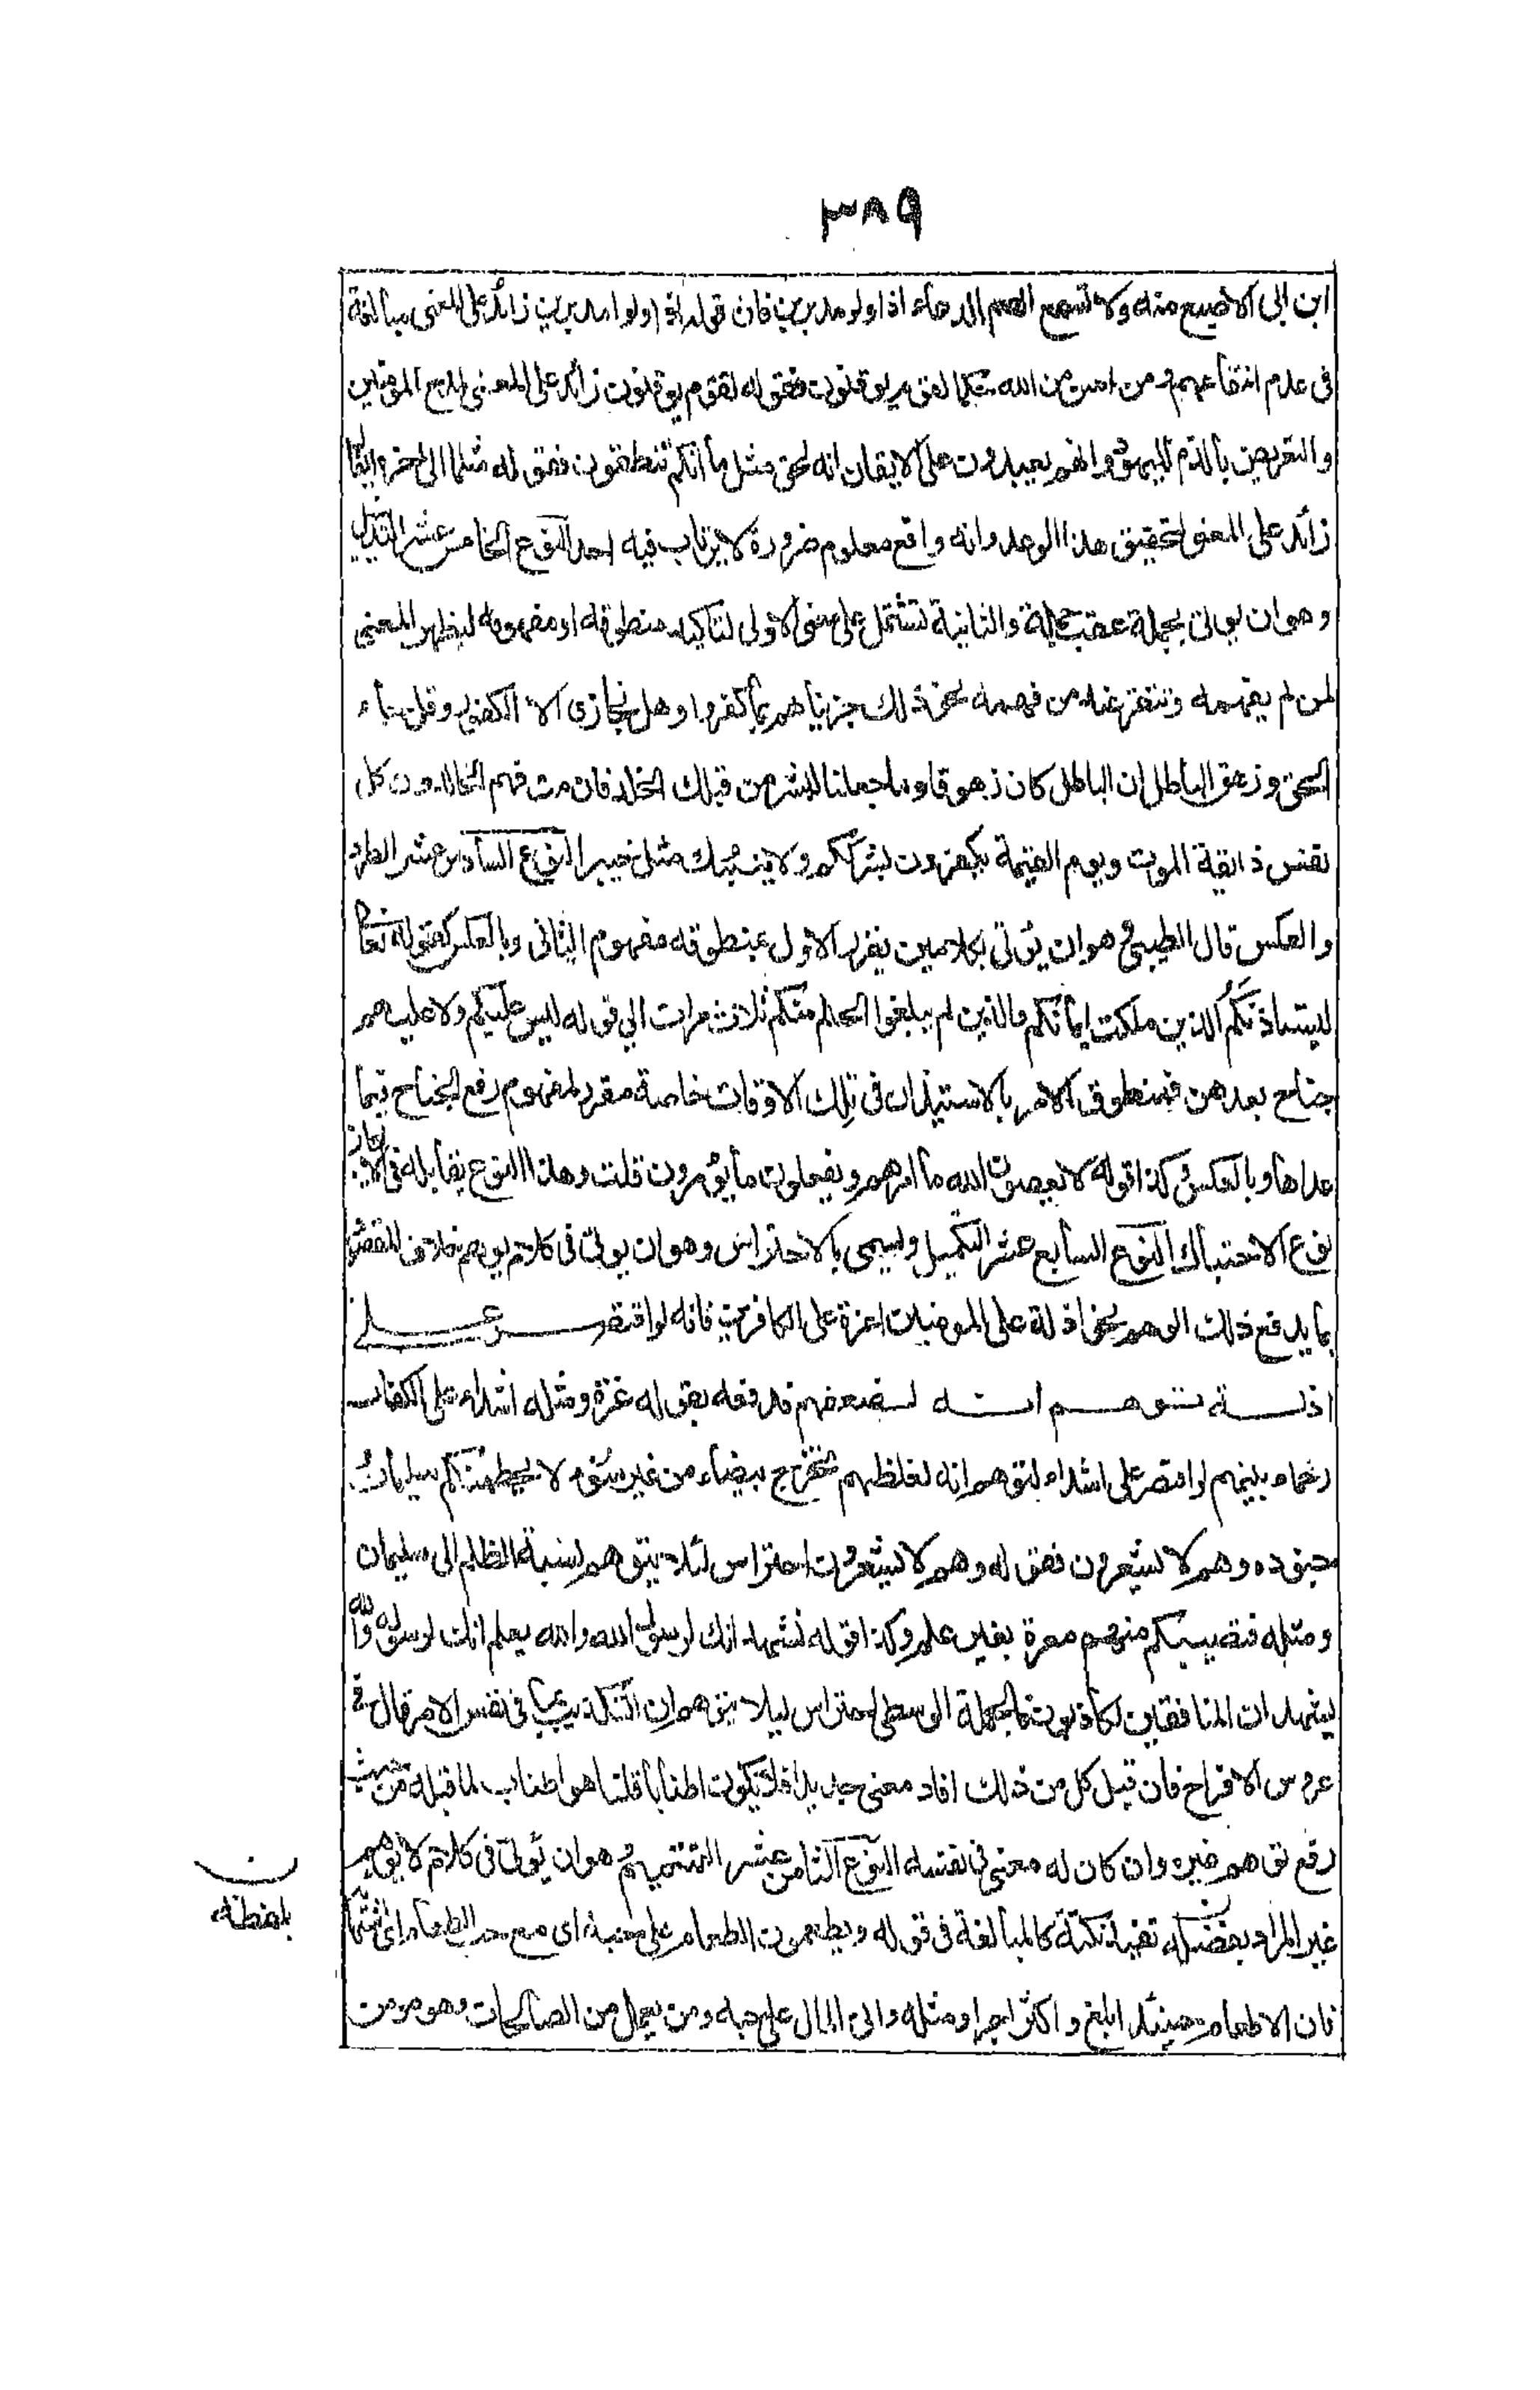 ٣٨٩
ابن ابى الاصبع منه ولا تسمع الصم الدعاء اذا ولو مدبرين فان قوله اذا ولوا مدبرين زائد على المعنى مبالغة
فى عدم انتفاعهم ومن احسن من الله حكما لقوم يوقنون فقوله لقوم يوقنون زائد على المعنى لمدح المؤمنين
والتعريض بالذم لليهود وانهم بعيدون على الايقان انه لحق مثل ما انكم تنطقون فقوله مثلما الى اخره ايضا
زائد على المعنى لتحقيق هذا الوعد وانه واقع معلوم ضرورة لا يرتاب فيه احد النوع الخامس عشر التذييل
وهو ان يوتى بجملة عقب جملة والثانية تشتمل على معنى الاولى لتاكيد منطوقه او مفهومه ليظهر المعنى
لمن لم يفهمه وتتقرر عند من فهمه نحو ذلك جزيناهم بما كفروا وهل نجازى الا الكفور وقل جاء
الحق وزهق الباطل ان الباطل كان زهوقا وما جعلنا لبشر من قبلك الخلد فان مت فهم الخالدون كل
نفس ذائقة الموت ويوم القيمة يكفرون بشرككم ولا ينبئك مثل خبير النوع السادس عشر الطرد
والعكس قال الطيبى هو ان يؤتى بكلامين يقرر الاول بمنطوقه مفهوم الثانى وبالعكس كقوله تعا
ليستاذنكم الذين ملكت ايمانكم والذين لم يبلغوا الحلم منكم ثلاث مرات الى قوله ليس عليكم ولا عليهم
جناح بعدهن فمنطوق الامر بالاستيذان فى تلك الاوقات خاصة مقرر لمفهوم رفع الجناح فيما
عداها وبالعكس وكذا قوله لا يعصون الله ما امرهم ويفعلون ما يؤمرون قلت وهذا النوع يقابله فى الايجاز
نوع الاحتباك النوع السابع عشر التكميل ويسمى بالاحتراس وهو ان يوتى فى كلام يوهم خلاف المقصود
بما يدفع ذلك الوهم نحو اذلة على المومنين اعزة على الكافرين فانه لو اقتصر على
اذلة لتوهم انه لضعفهم فدفعه بقوله اعزة ومثله اشداء على الكفار
رحماء بينهم لو اقتصر على اشداء لتوهم انه لغلظهم تخرج بيضاء من غير سوء لا يحطمنكم سليمان
وجنوده وهم لا يشعرون فقوله وهم لا يشعرون احتراس لئلا يتوهم نسبة الظلم الى سليمان
ومثله فتصيبكم منهم معرة بغير علم وكذا قوله نشهد انك لرسول الله والله يعلم انك لرسوله والله
يشهد ان المنافقين لكاذبون فالجملة الوسطى احتراس ليلا يتوهم ان التكذيب مما فى نفس الامر قال فى
عروس الافراح فان قيل كل من ذلك افاد معنى جديدا فلا يكون اطنابا قلنا هو اطناب لما قبله من حيث
رفع توهم غيره وان كان له معنى فى نفسه النوع الثامن عشر التتميم هو ان يؤتى فى كلام لا يوهم
غير المراد بفضلة تفيد نكتة كالمبالغة فى قوله ويطعمون الطعام على حبه اى مع حب الطعام اى اشتهاء
فان الاطعام حينئذ ابلغ واكثر اجرا ومثله واتى المال على حبه ومن يعمل من الصالحات وهو مومن
ن
بلفظة